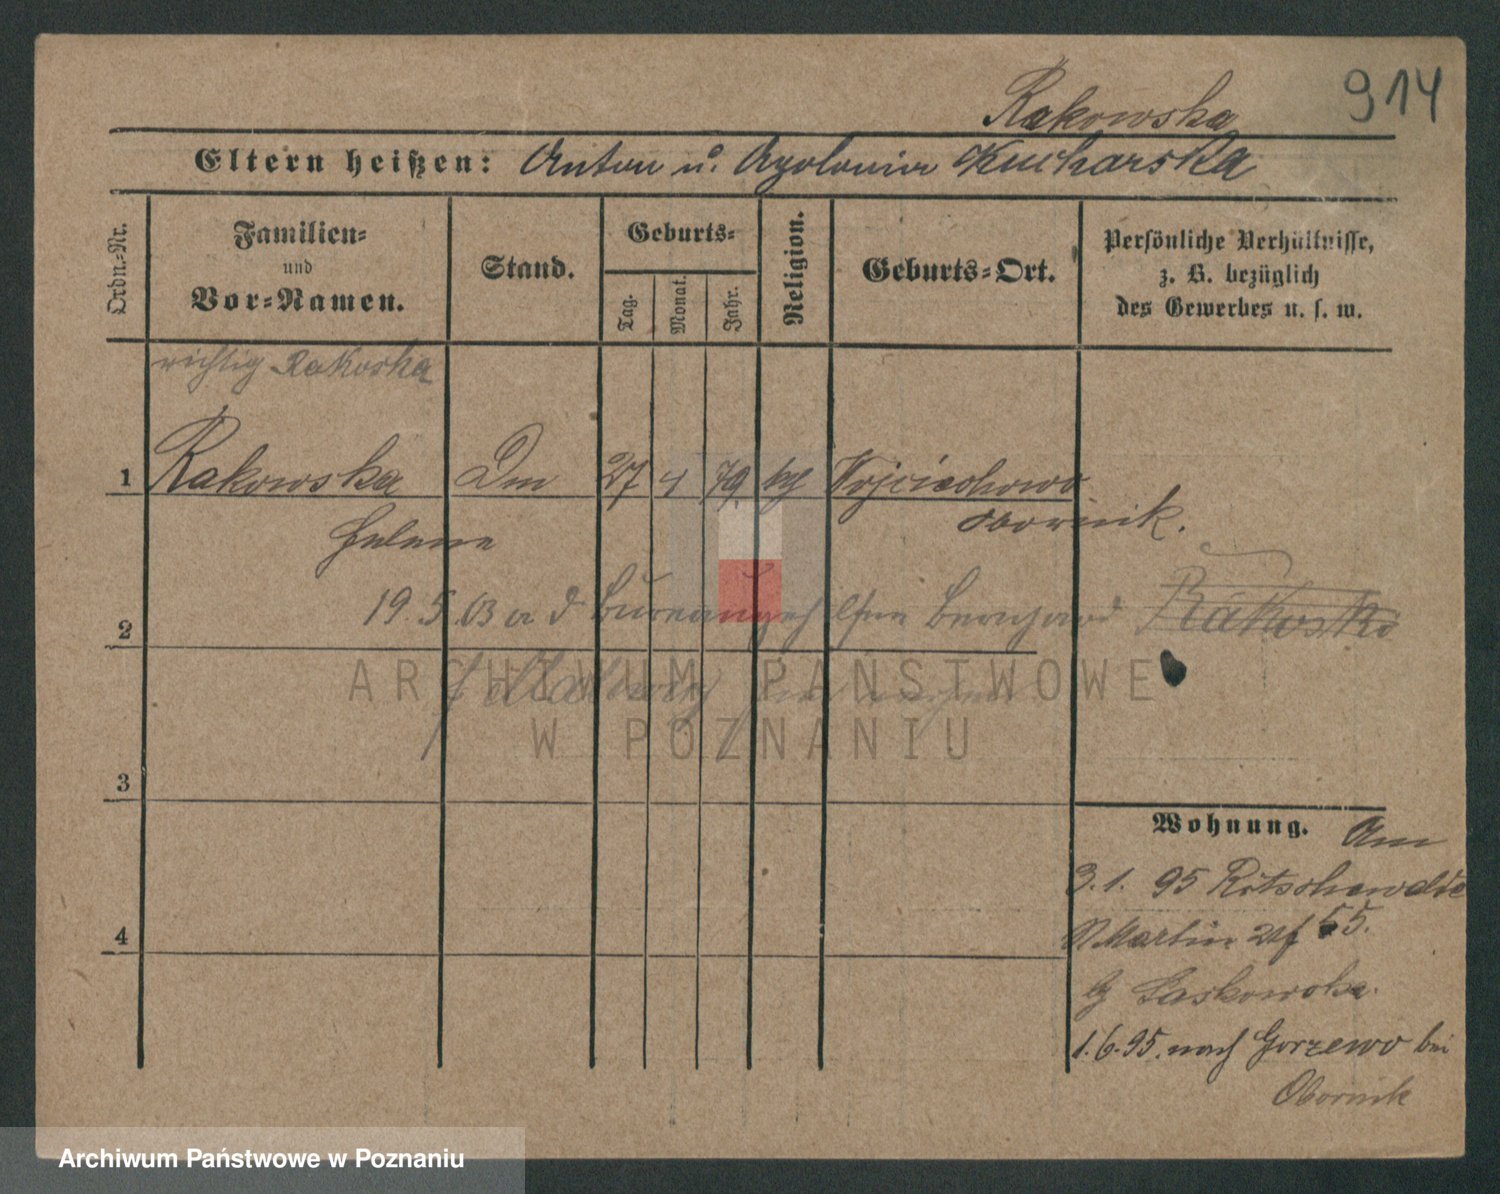 914
Rakowska
Eltern heißen: Anton u. Apolonia Kucharska
Ordn.-Nr.
Familien-
und
Vor-Namen.
Stand.
Geburts-
Tag.
Monat.
Jahr.
Religion.
Geburts-Ort.
Persönliche Verhältnisse,
z. B. bezüglich
des Gewerbes u. s. w.
richtig Rakoska
1 Rakowska Dm 27 4 79 kg Wojciechowo
Helene Obornik.
19.5.03 a d Bureaugehilfen Bernhard Rakoski
2
ARCHIWUM PAŃSTWOWE
W POZNANIU
3
4
Wohnung. Am
3.1.95 Ritschenwalde
St Martin 55.
Laskowska.
1.6.95. nach Gorzewo bei
Obornik
Archiwum Państwowe w Poznaniu